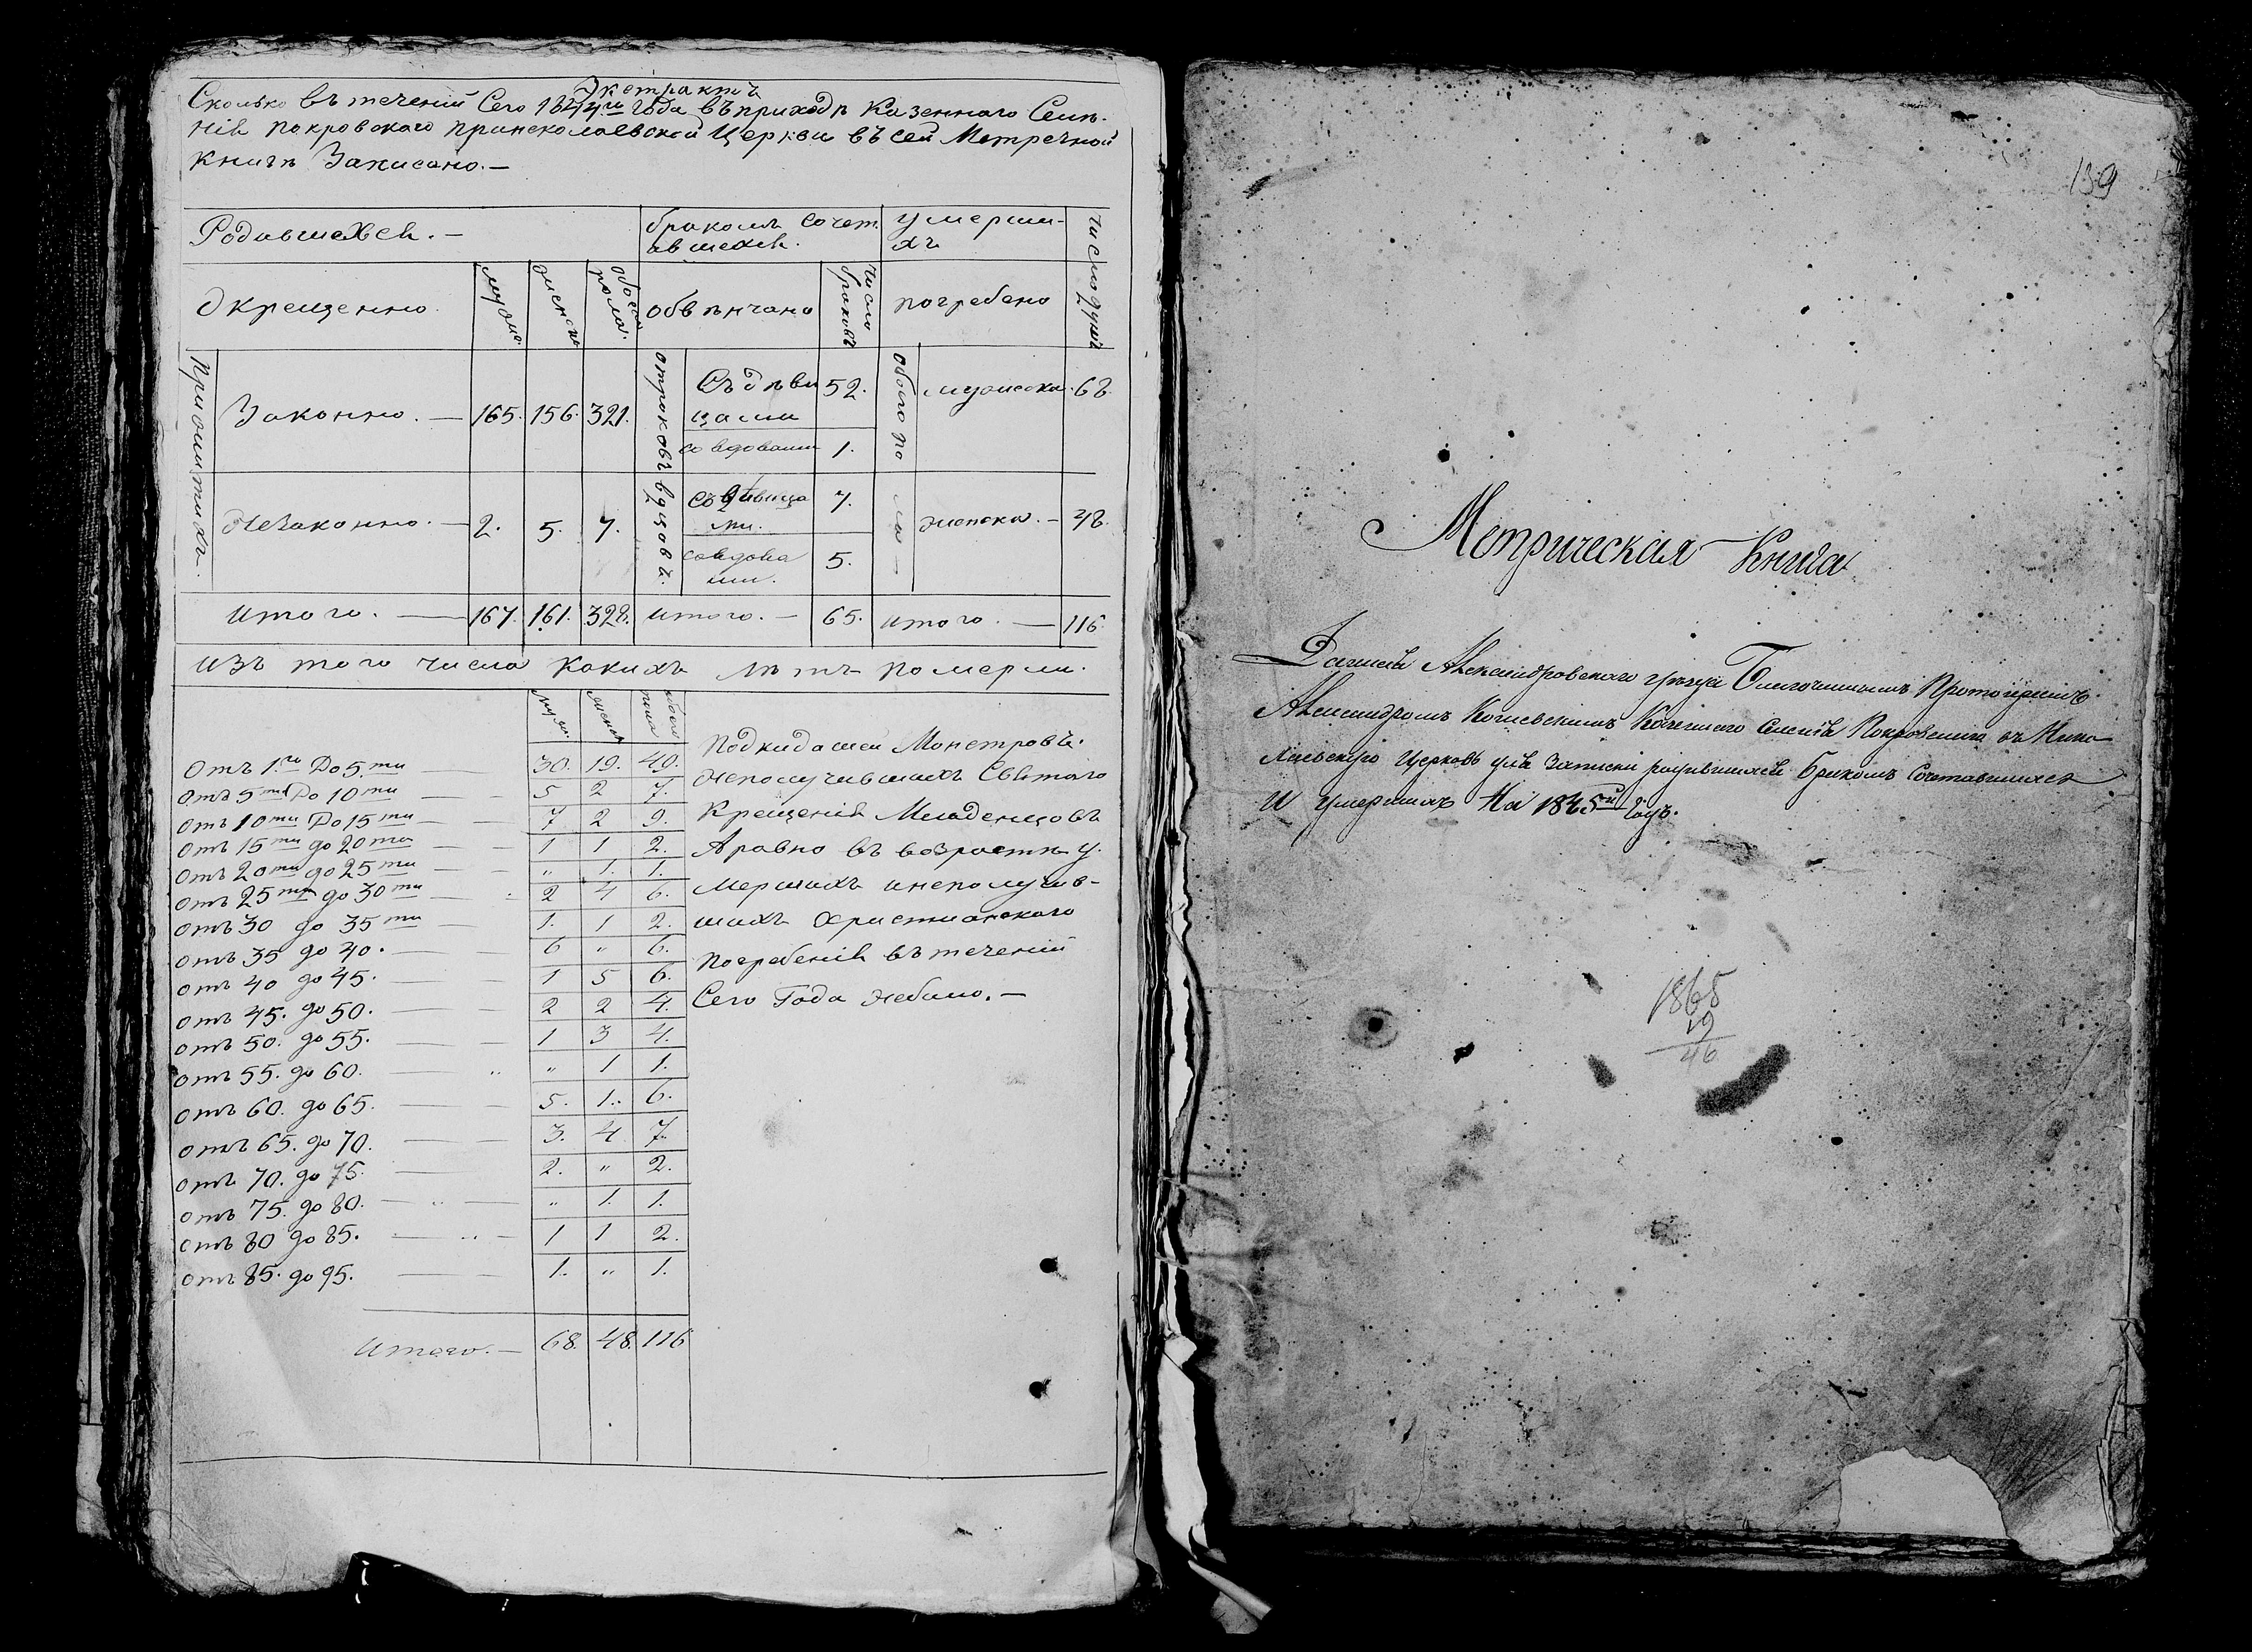 Экстрактъ
Сколько въ теченіи Сего 1844го Года въ приходѣ Казеннаго Селе-
нія покровскаго пранеколаевской Церкви въ сей Метречной
книгѣ Записано.—
Родившехся.— бракомъ сочет умерши- число душъ
авшехся. хъ
Окрещенно. мужс. женск обоего пола. обвѣнчано число браковъ погребено
Прижитыхъ. Законно.— 165. 156. 321. отроковъ Съ дѣви 52. обоего по мужеска. 68.
цами
со вдовами 1.
Незаконно.— 2. 5. 7. вдцовъ. Съ дѣвица 7. ла— женска.— 48.
ми.
со вдова 5.
ми.
итого.— 167. 161. 328. итого.— 65. итого.— 116.
изъ того числа какихъ лѣтъ померли.
Отъ 1.го До 5.ти 30. 19. 49.
отъ 5ти До 10ти 5 2 7.
отъ 10ти До 15ти 7. 2 9.
отъ 15ти до 20ти 1 1 2.
отъ 20ти до 25ти " 1. 1.
отъ 25ти до 30ти 2 4 6.
отъ 30 до 35ти 1. 1 2.
отъ 35 до 40. 6 " 6.
отъ 40 до 45. 1 5 6.
отъ 45. до 50. 2 2 4.
отъ 50. до 55. 1 3 4.
отъ 55. до 60. " 1 1.
отъ 60. до 65. 5. 1. 6.
отъ 65. до 70. 3. 4 7.
отъ 70. до 75. 2. " 2.
отъ 75. до 80. " 1. 1.
отъ 80 до 85. 1 1 2.
отъ 85. до 95. 1. " 1.
итого.— 68. 48. 116
Подкидашеи Монстровъ.
неполучившихъ Святаго
Крещенія Младенцовъ
Аравно въ возрастѣ у-
мершихъ инеполучив-
шихъ христианского
погребенія въ теченіи
Сего Года небыло.—
139
Метрическая Книга
Данная Александровскаго уѣзда Благочиннымъ Протоіереемъ
Александромъ Казеннаго Селенія Покровскаго въ Нико-
лаевскую Церковь для записки родившихся бракомъ Сочетавшихся
И умершихъ На 1845й Годъ.
1865
19
46